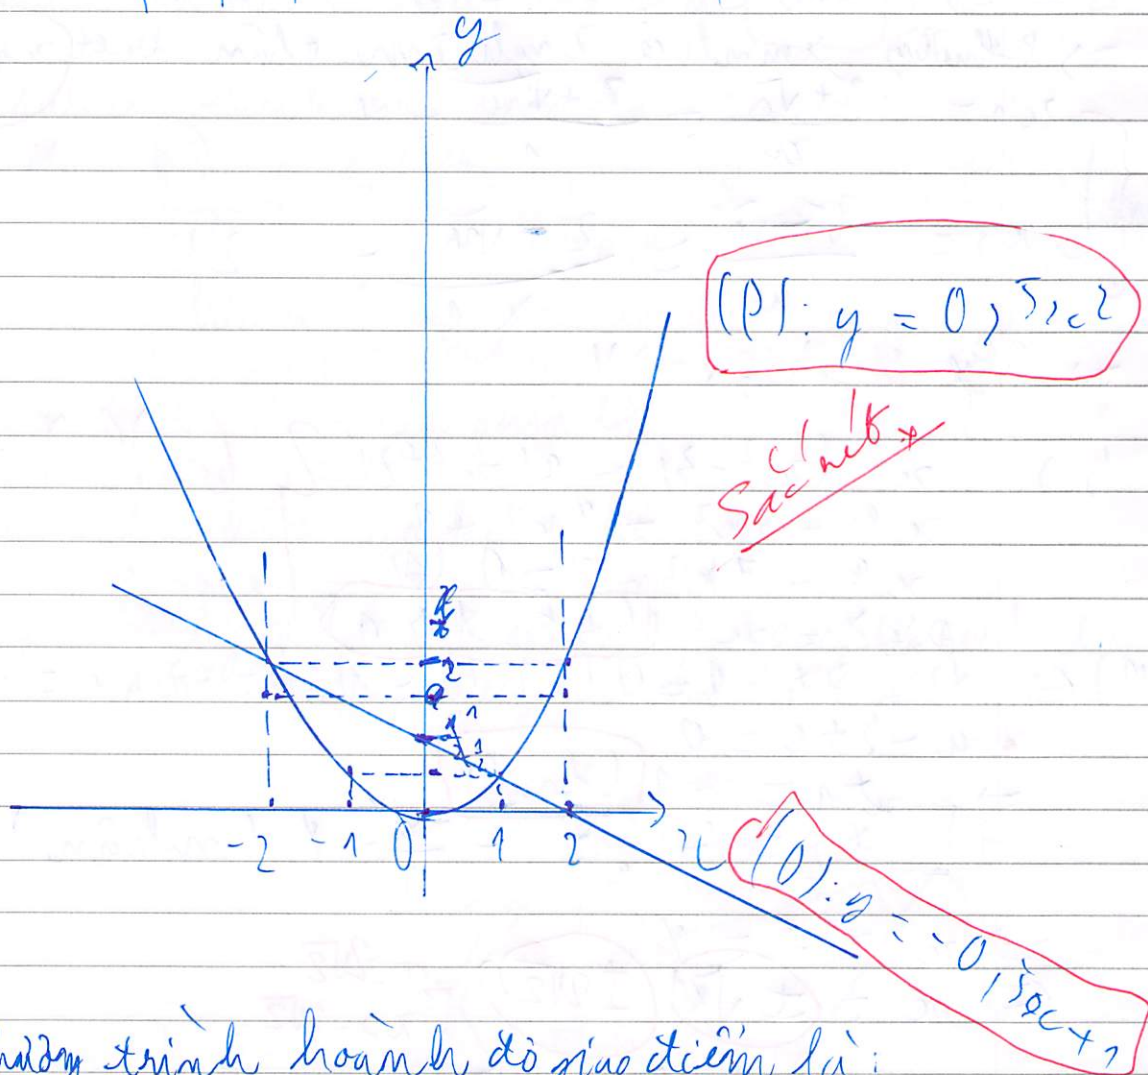 y
(P): y = 0,5x2
Sắc nét
2
1
-2 -1 0 1 2 x
(D): y = -0,5x+1
trình hoành độ giao điểm là: